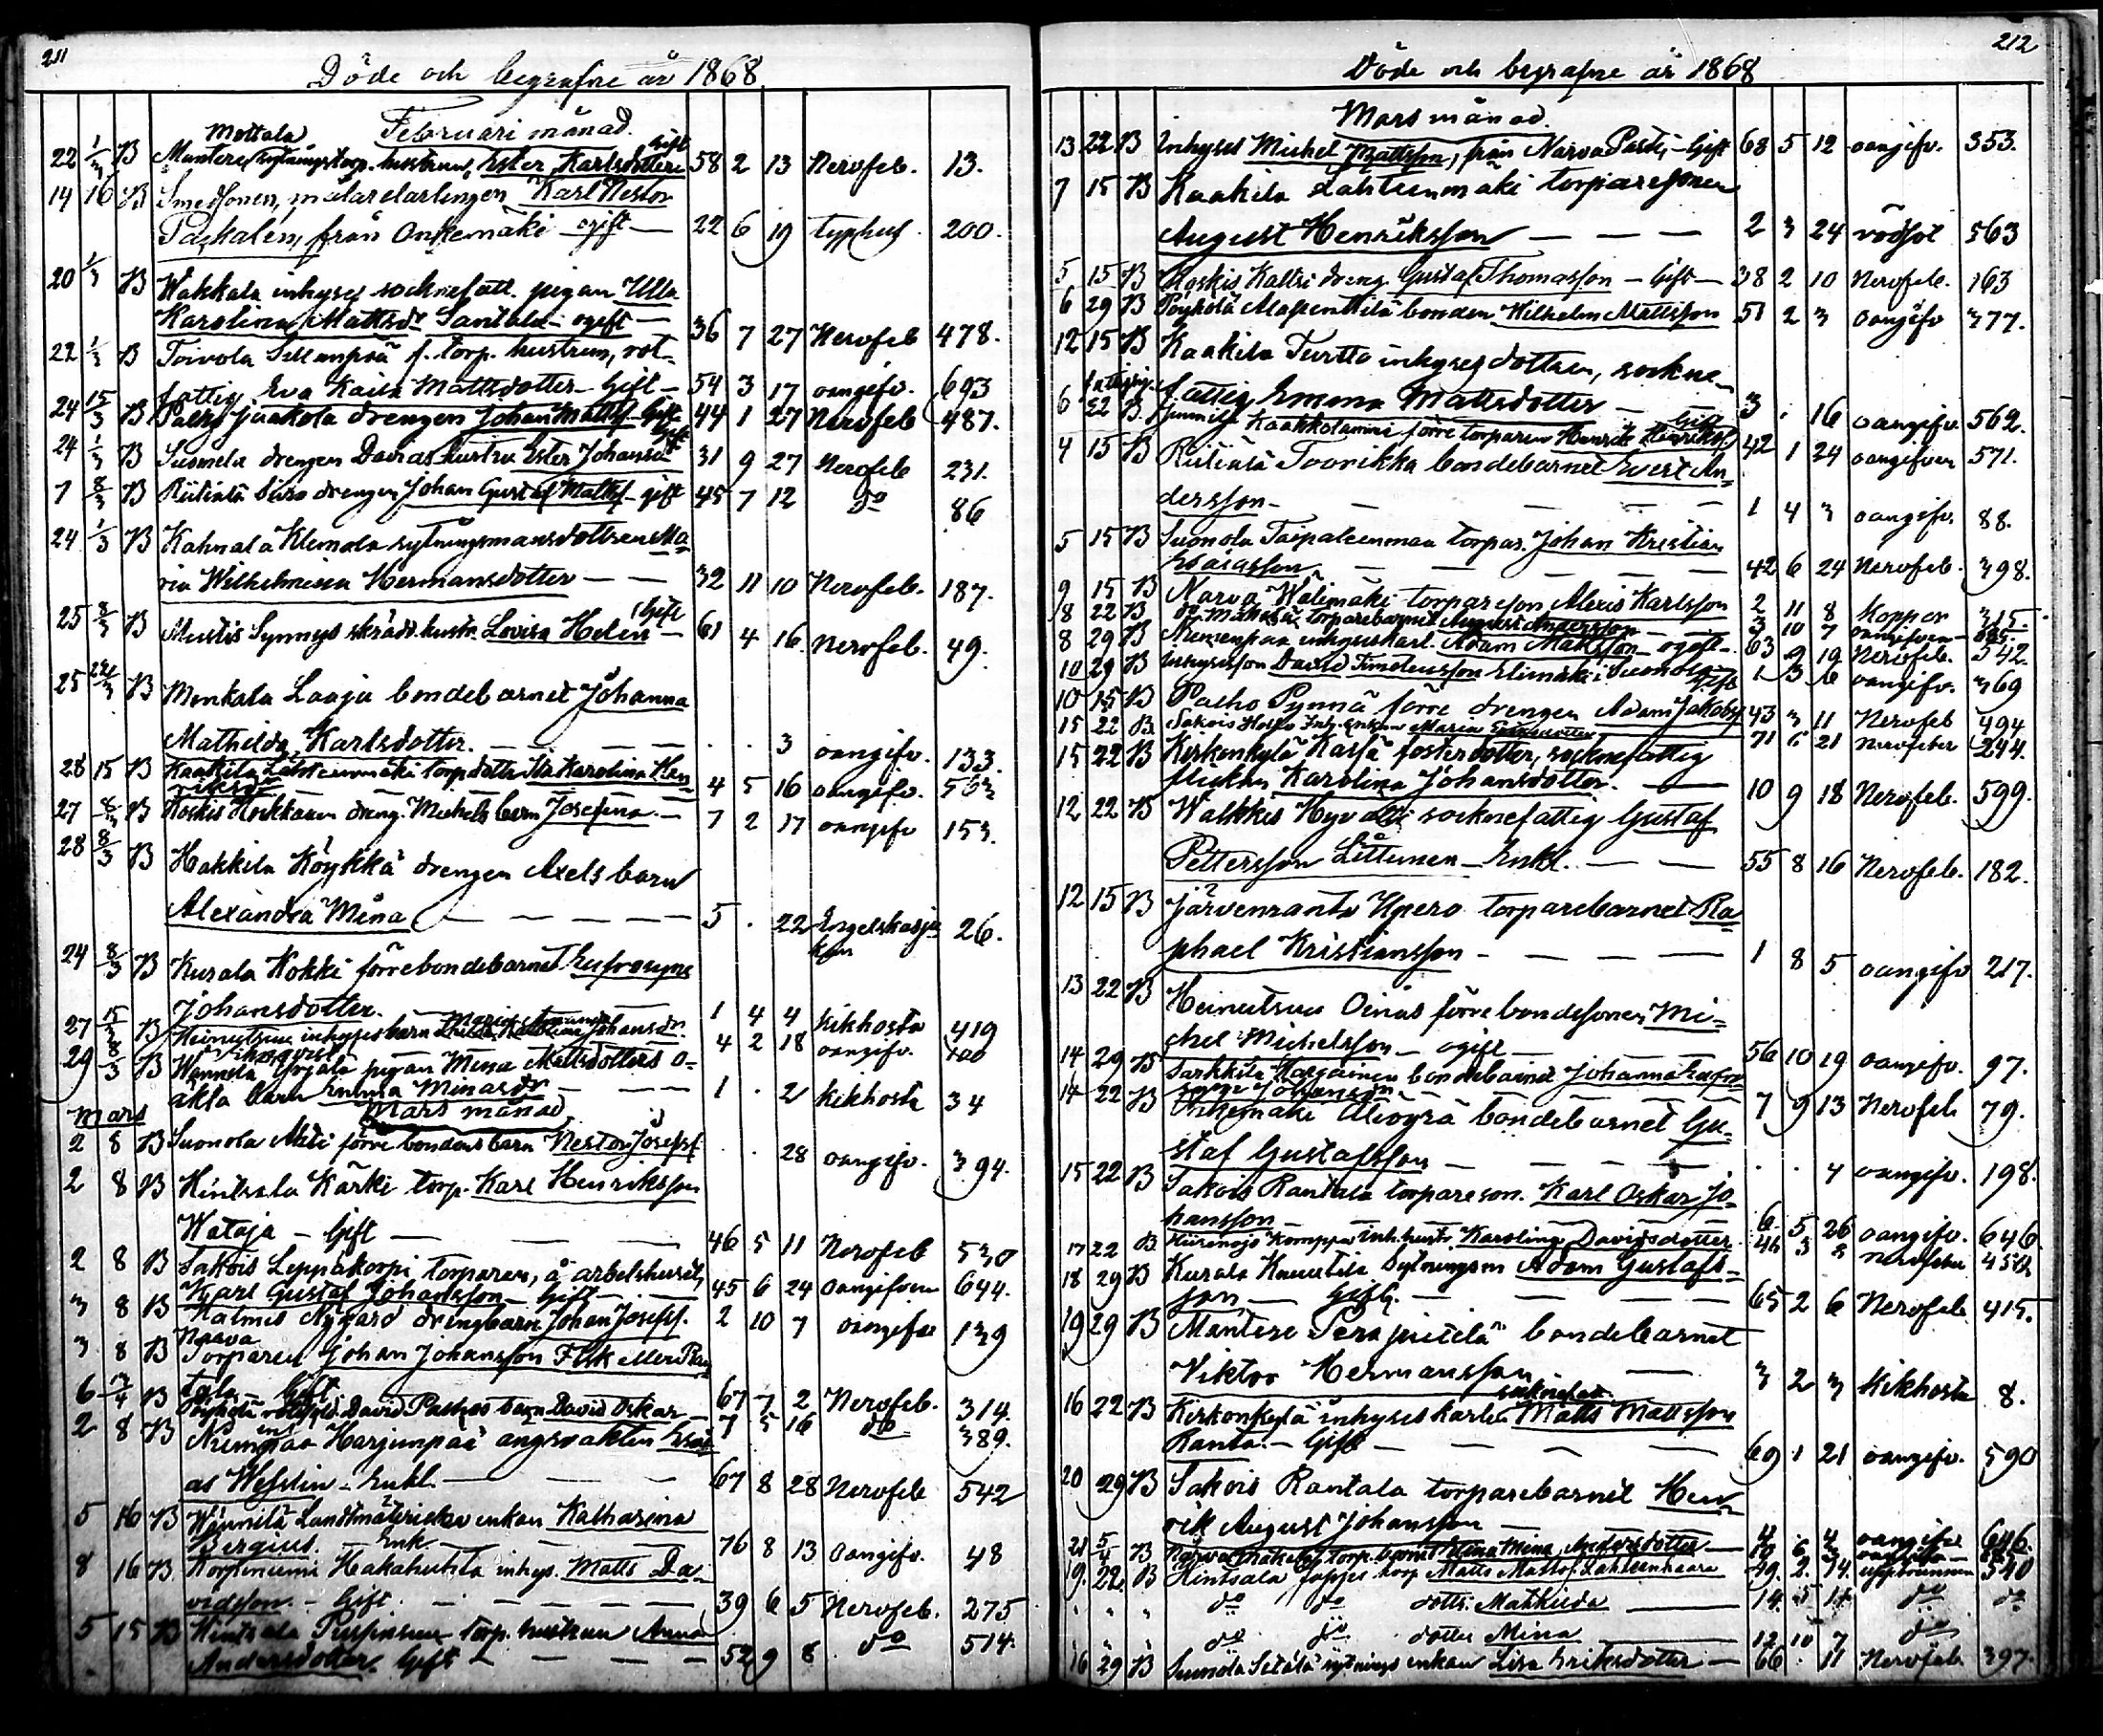 211
Döde och begrafne år 1868
Februari månad.
Mottala Gift
22 1/3 B Mantere sytningstorp. hustrun, Ester Karlsdotter 58 2 13 Nervfeb. 13.
14 16 B Smedsonen, målarelärlingen Karl Nestor
Paskalén, från Onkemäki ogift — 22 6 19 typhus. 200.
20 1/3 B Wakkala inhyses socknefatt. pigan Ulla
Karolina Mattsdr Santala — ogift — 36 7 27 Nervfeb 478.
22 1/3 B Toivola Sillanpää f. torp. hustrun, rot-
fattig Eva Kaisa Mattsdotter — Gift — 54 3 17 oangifv. 693
24 15/3 B Palho Jaakola drengen Johan Matts. Gift 44 1 27 Nervfeb 487.
24 1/3 B Suomela drengen Davids hustru Ester Johansdr Gift 31 9 27 Nervfeb 231.
1 8/3 B Riitiälä Uuro drengen Johan Gustaf Mattss. gift 45 7 12 do 86
24 1/3 B Kahnala Klemola sytningsmansdottren Ma-
ria Wilhelmina Hermansdotter — — 32 11 10 Nervfeb. 187.
25 8/3 B Mustis Synnys skrädd. hustr. Lovisa Helen — Gift 61 4 16 Nervfeb. 49.
25 22/3 B Menkala Laaja bondebarnet Johanna
Mathilda Karlsdotter. — — — . . 3 oangifv. 133.
28 15 B Kaakila Lahteenmäki torp.dotter Ida Karolina Hen-
riksdr — — — 4 5 16 oangifv. 563
27 8/3 B Koskis Hokkanen dreng. Michels barn Josefina. — 7 2 17 oangifv 153.
28 8/3 B Hakkila Köykkä drengen Axels barn
Alexandra Mina — — — 5 . 22 Engelska sju- 26.
kan
24 8/3 B Kurala Kokki förre bondebarnet Eufrosyne
Johansdotter. — — — 1 4 4 Kikhosta 419
27 15/3 B Heinutsuu inhyses barn Maria Amanda Johansdr. 4 2 18 oangifv. 100
29 8/3 B Wannela Yrjälä pigan Mina Mattsdotters o-
äkta barn Emma Minasdr — — — 1 . 2 Kikhosta 34
Mars Mars månad
2 8 B Suonola Matti förre bondens barn Nestor Josefsf. . . 28 oangifv. 394.
2 8 B Hintsala Kärki torp. Karl Henriksson
Wataja — Gift — — — 46 5 11 Nervfeb 530
2 8 B Sakois Leppäkorpi torparen, å arbetshuset,
Karl Gustaf Johansson — Gift — 45 6 24 Oangifven 644.
3 8 B Kalmis Nygård drengbarn Johan Josefsf. 2 10 7 oangifv 139
3 8 B Narva Torparen Johan Johansson Flik eller Ran-
tala Gift 67 7 2 Nervfeb. 314.
6 12/4 B Pöyhölä rotehjon David Palhos barn David Oskar — 7 5 16 do 389.
2 8 B Niemenpää Harjunpää ångvaktin Esai-
as Wesslin — Enkl. — — — 67 8 28 Nervfeb 542
5 16 B Wännilä Landtmäteriska enkan Katharina
Bergius. — Enk — — 76 8 13 Oangifv. 48
8 16 B Korpiniemi Hakahuhta inhys. Matts Da-
vidsson. — Gift. — — — 39 6 5 Nervfeb. 275
5 15 B Hintsala Pispinen torp. hustrun Anna
Andersdotter. Gift — — — 52 9 8 do 514.
212
Döde och begrafne år 1868
Mars månad.
13 22 B Inhyses Michel Mattsson, från Narva Pasti, — Gift 68 5 12 oangifv. 353.
7 15 B Kaakila Lahteenmäki torparesonen
August Henriksson — — — 2 3 24 rödsot 563
5 15 B Koskis Kattri dreng. Gustaf Thomasson — Gift — 38 2 10 Nervfeb. 163
6 29 B Pöyhölä Alaskenkilä bonden Wilhelm Mattsson 51 2 3 Oangifv 377.
12 15 B Kaakila Turtta inhyses dottren, sockne-
fattig Emma Mattsdotter — — 3 . 16 oangifv. 562.
6 22 B Junnila Kaakkolammi förre torparen Henrik Henriksf. Gift 42 1 24 oangifven 571.
4 15 B Riitiälä Tuorikka bondebarnet Evert An-
dersson — — — — 1 4 3 oangifv. 88.
5 15 B Suonola Taipaleenmaa torpar. Johan Kristian
Esaiasson — — — — 42 6 24 Nervfeb. 398.
9 15 B Narva Wälimäki torpareson Alexis Karlsson 2 11 8 Koppor 315.
8 22 B do Mäkelä torparebarnet August Andersson — 3 10 7 oangifven
8 29 B Niemenpää inhyseskarl. Adam Mattsson — ogift — 63 9 19 Nervfeb. 542
10 29 B Inhyseson David Timoteusson Elimäki i Suonola 1 3 6 oangifv. 369
10 15 B Palho Pynnä förre drengen Adam Jakobsf. Gift 43 3 11 Nervfeb 494
15 22 B Sakois Hoipo Inh. enkan Maria 71 6 21 nervfeber 244.
15 22 B Kirkonkylä Kassä fosterdotter, socknefattig
flickan Karolina Johansdotter. — 10 9 18 Nervfeb. 599.
12 22 B Walkkis Hyvatti socknefattig Gustaf
Pettersson Littunen — Enkl. — — 55 8 16 Nervfeb. 182.
12 15 B Järvenranta Ypero torparebarnet Ra-
phael Kristiansson — — — 1 8 5 oangifv 217.
13 22 B Heinutsuu Oinas förre bondsonen Mi-
chel Michelsson — ogift — 56 10 19 oangifv. 97.
14 29 B Sarkkila Kargainen bondebarnet Johanna Eufro-
syne Johansdr 7 9 13 Nervfeb 79.
14 22 B Onkemäki Aliogrä bondebarnet Gu-
staf Gustafsson — — — . . 7 oangifv. 198.
15 22 B Sakois Rantala torpareson. Karl Oskar Jo-
hansson — — — 6. 5 26 oangifv. 646
17 22 B Hiirenoja Komppa Inh. hustr. Karolina Davidsdotter 46 3 8 nervfeber 450
18 29 B Kurala Knuutila Sytningsm Adam Gustafs-
son — Gift. — — — 65 2 6 Nervfeb. 415.
19 29 B Mantere Perapietilä bondebarnet
Viktor Hermansson — — 3 2 3 Kikhosta 8.
16 22 B Kirkonkylä inhyseskarlen socknefat. Matts Mattsson
Ranta. — Gift — — — 69 1 21 oangifv. 590
20 29 B Sakois Rantala torparebarnet Hen-
rik August Johansson — 4 . 4 oangifv 646.
21 5/4 B Narva Mäkelä torp. barnet Mina Andersdotter —
19. 22 B Hintsala Joppes torp Matts Mattsf. Lahteenhaara 49. 2. 14. uppbrunnen 540
" " " do do dottr. Mathilda — 14. 5 14 do do
" " " do do dotter Mina — 12 10 7 do
16 29 B Suonola Setälä sytnings enkan Lisa Eriksdotter — 66 . 11 Nervfeb. 397.